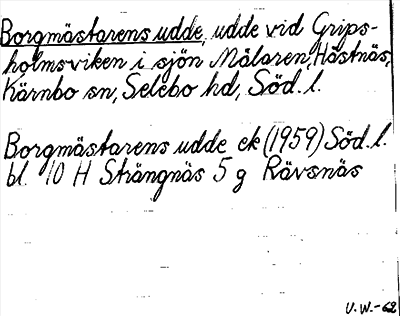 Borgmästarens udde, udde vid Grips-
holmsviken i sjön Mälaren, Hästnäs,
Kärnbo sn, Selebo hd, Söd. l.
Borgmästarens udde ek (1959) Söd. l.
bl. 10 H Strängnäs 5 g Rävsnäs
U.W.-62